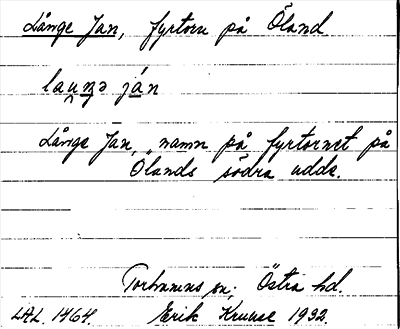 Långe Jan, fyrtorn på Öland
lauŋə ján
Långe Jan, namn på fyrtornet på
Ölands södra udde.
Torhamns sn; Östra hd.
LAL. 1464. Erik Kruuse 1932.